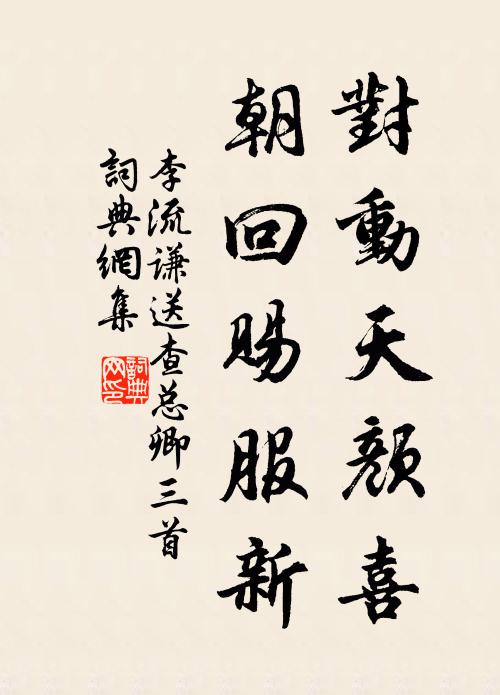 對動天顏喜
朝回賜服新
李流谦送查总卿三首
詞典網集
詞典
网印